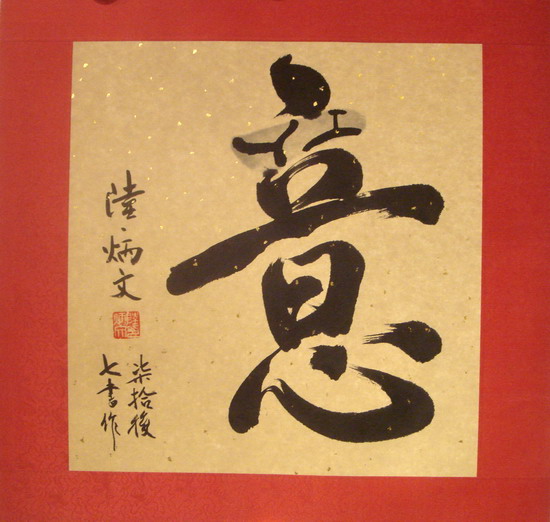 意
陸炳文
柒拾後
七書作